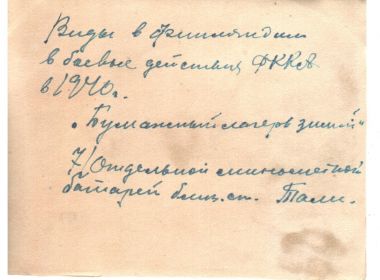 Виды в Финляндии
в боевые действия РККА
в 1940г.
„Бумажный лагерь зимой"
7/Отдельной минометной
батарей близ. ст. Тали.